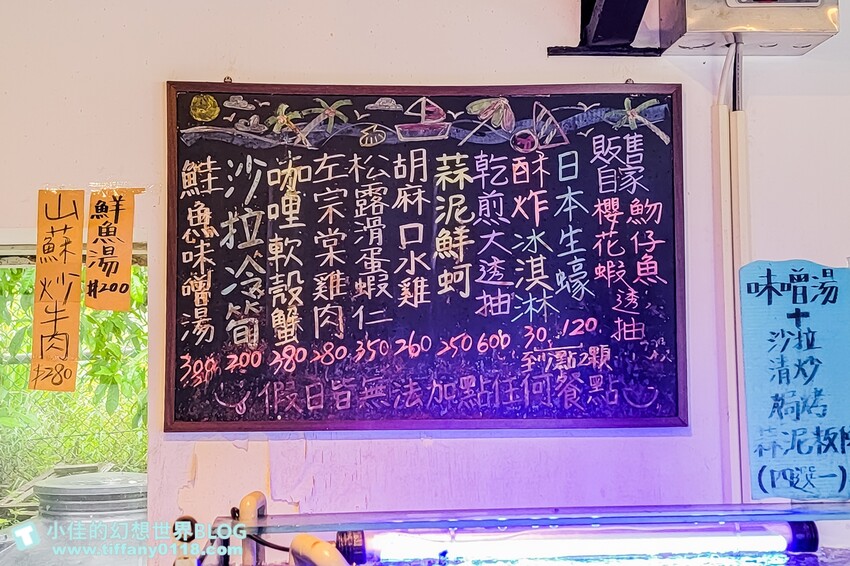 山蘇炒牛肉
$280
鮮魚湯
$200
販售
自家
吻仔魚
櫻花蝦
透抽
日本生蠔
120
酥炸冰淇淋
30
到點2顆
乾煎大透抽
600
蒜泥鮮蚵
250
胡麻口水雞
260
松露滑蛋蝦仁
350
左宗棠雞肉
280
咖哩軟殼蟹
380
沙拉冷筍
200
鮭魚味噌湯
300
假日皆無法加點任何餐點
味噌湯
+
沙拉
清炒
焗烤
蒜泥
(四選一)
小佳的幻想世界BLOG
www.tiffany0118.com